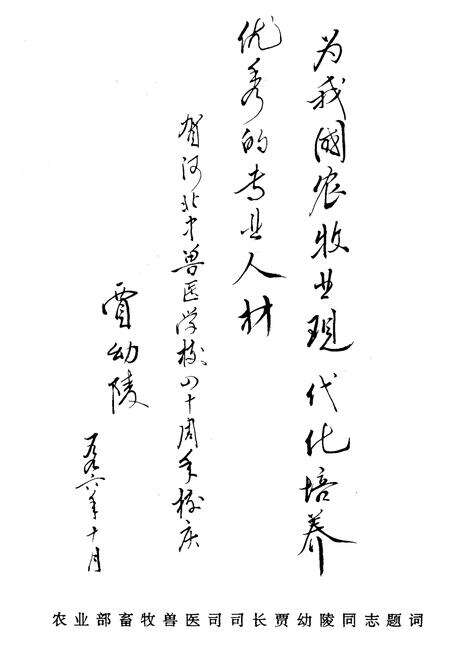 为我國农牧业現代化培养
优秀的专业人材
贺河北中兽医学校四十周年校庆
贾幼陵
一九九六年十月
农业部畜牧兽医司司长贾幼陵同志题词